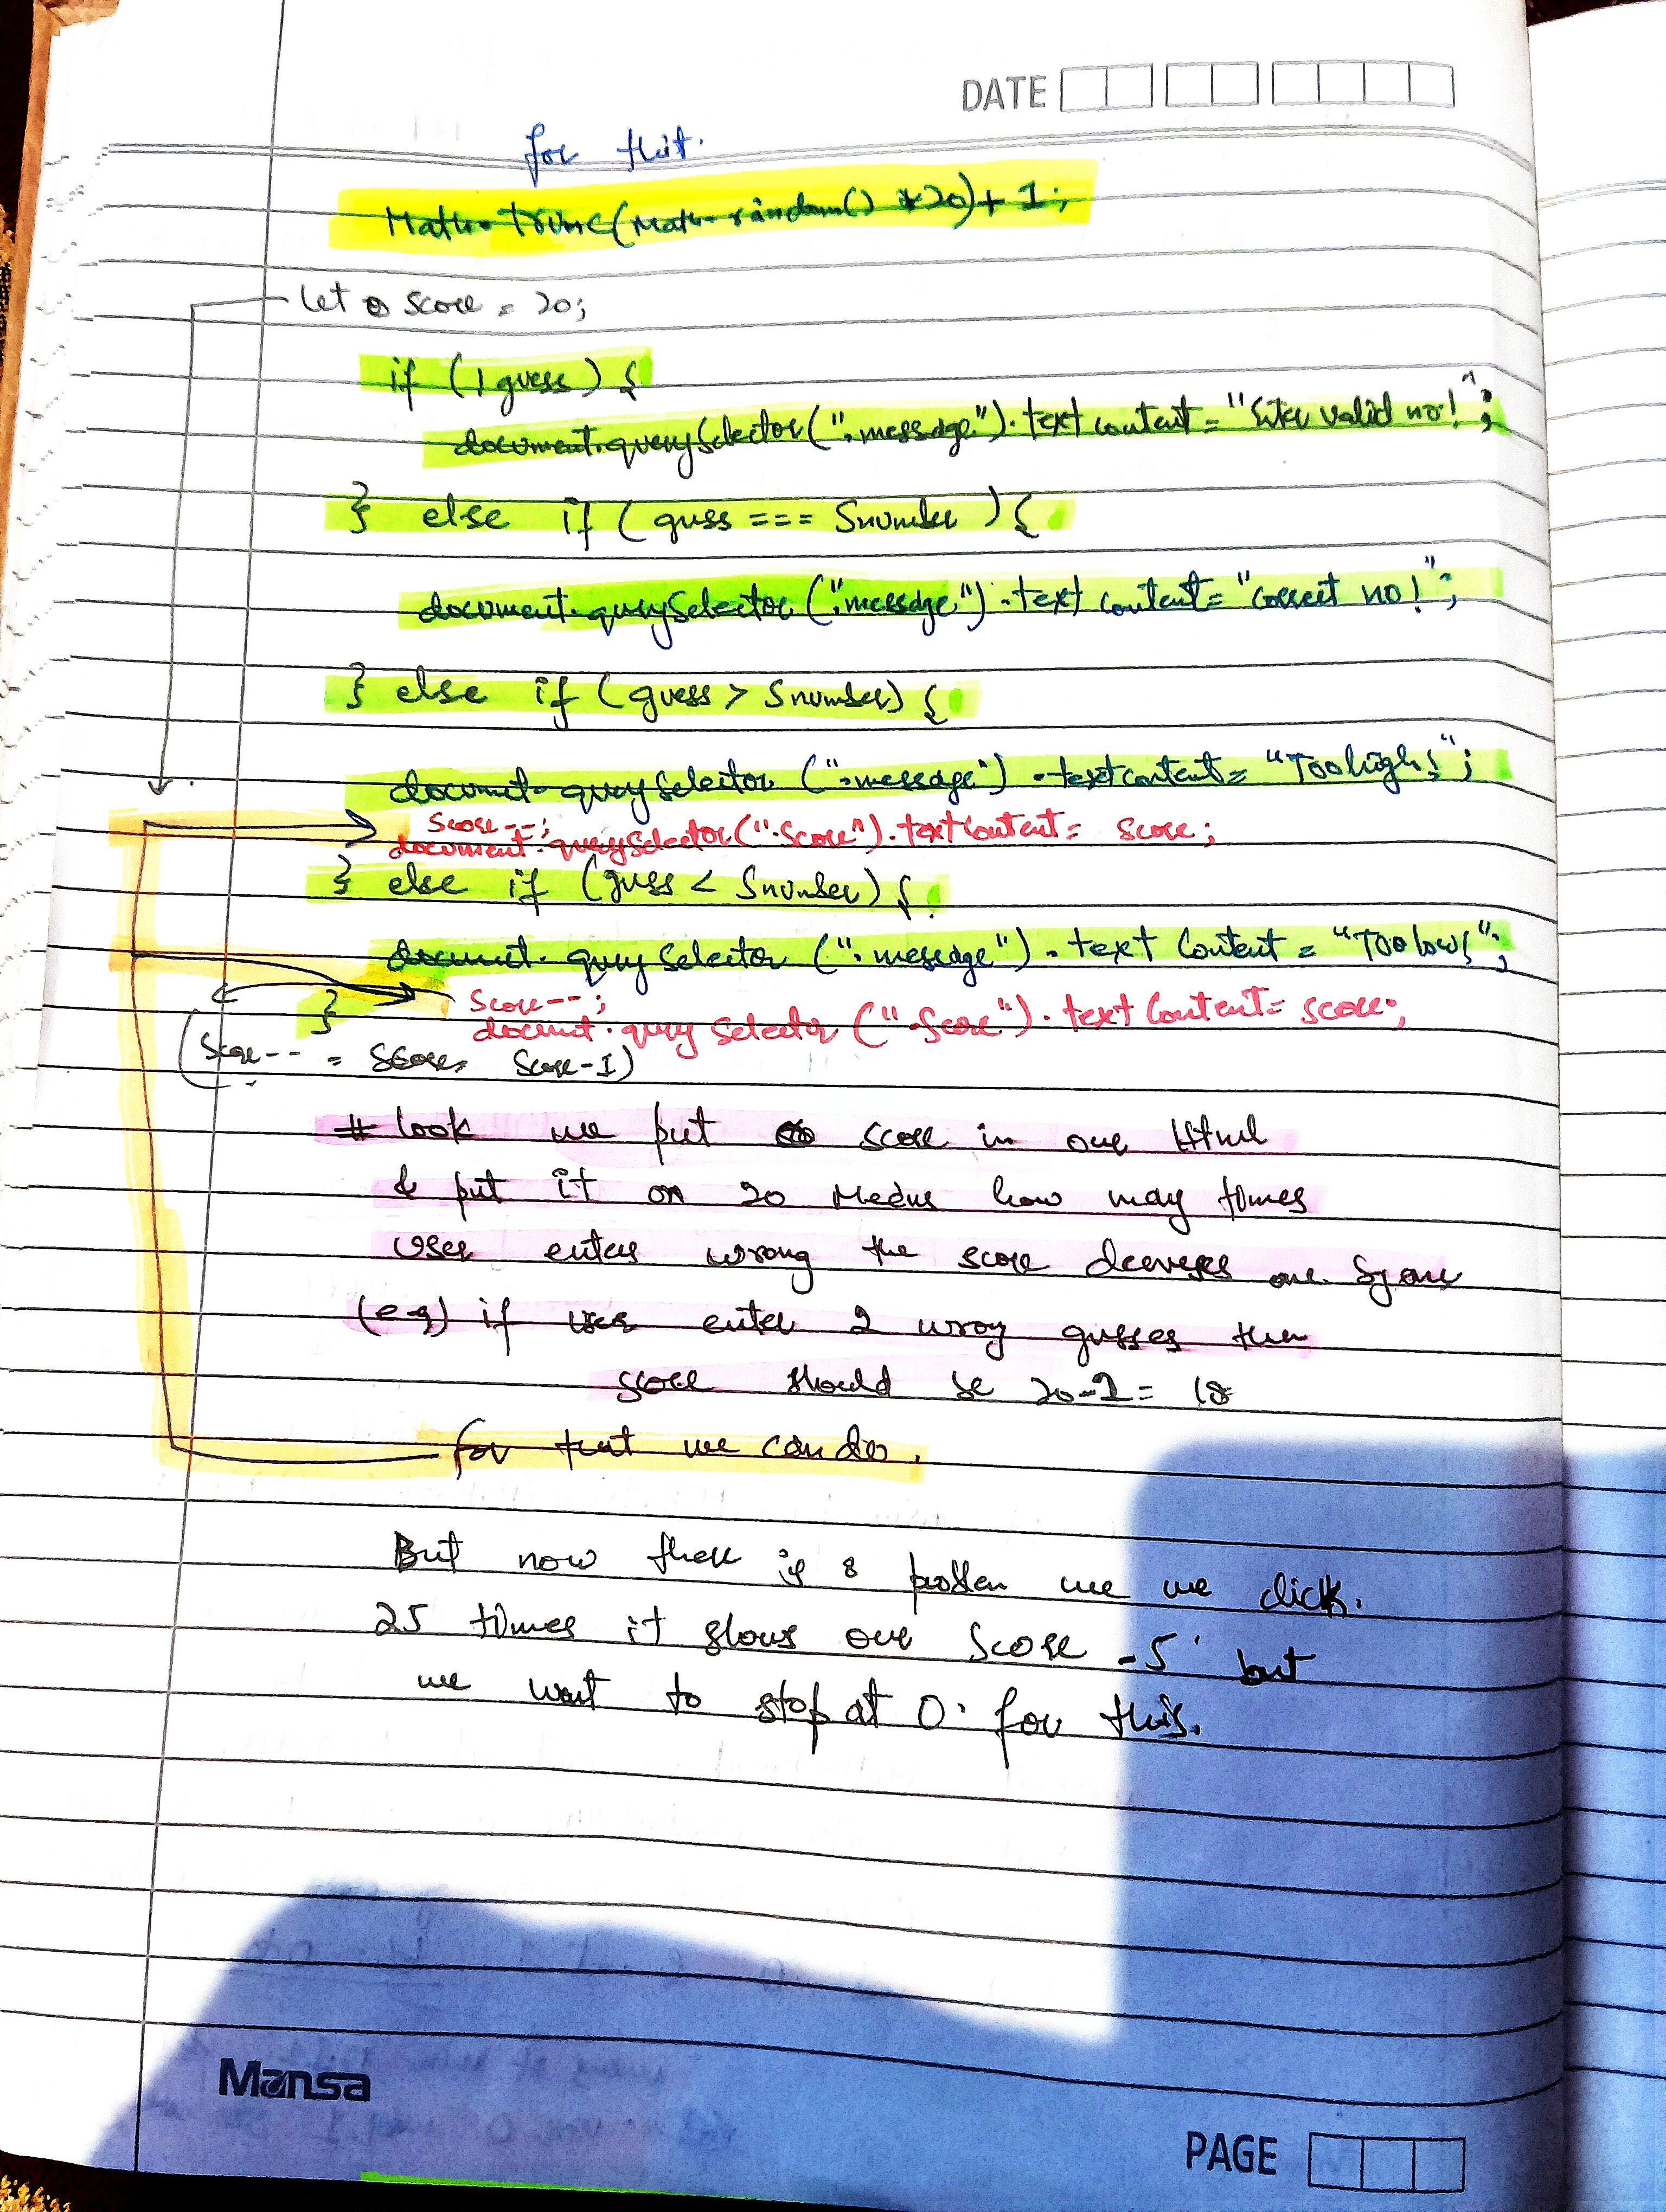 DATE
for that.
Math.trunc(Math.random() *20)+1;
let score = 20;
if (!guess) {
document.querySelector(".message").textcontent = "Enter valid no!";
} else if (guss === Snumber) {
document.querySelector(".message").textcontent = "correct no!";
} else if (guess > Snumber) {
documet.querySelector (".message").textcontent = "Too high!";
Score--;
document.querySelector(".Score").textContent = Score;
} else if (guss < Snumber) {
document.querySelector (".message").textContent = "Too low!";
Score--;
}
documt.querySelector (".Score").textContent = score;
(Score-- = Score= Score-1)
# look we put score in our Html
& put it on 20 Means how may times
user enters wrong the score one
(e.g) if user enter 2 wrog gusses then
score should be 20-2 = 18
for that we can do.
But now there is a problem we we click.
25 times it shows our Score -5 but
we want to stop at 0. for this.
Mansa
PAGE